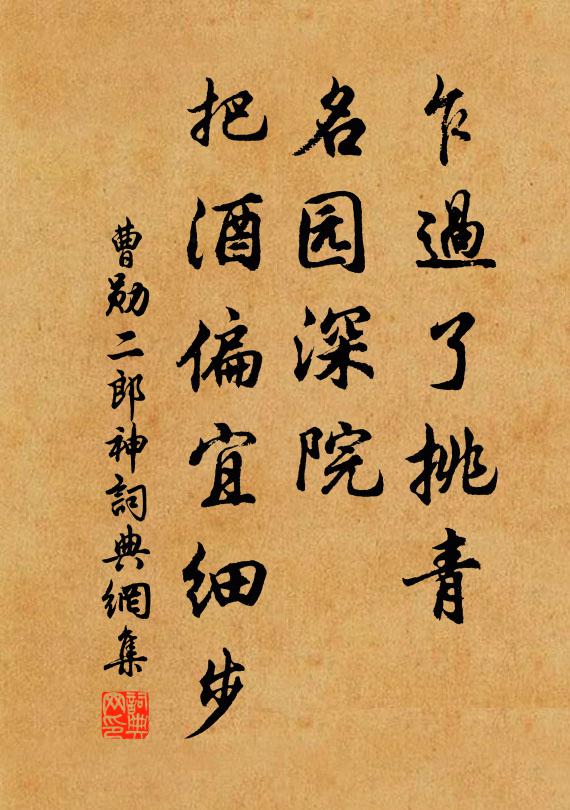 乍過了挑青
名园深院
把酒偏宜细步
曹勋二郎神詞典網集
詞典網印